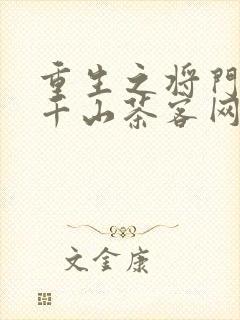 重生之将门
千山茶客网
文金康